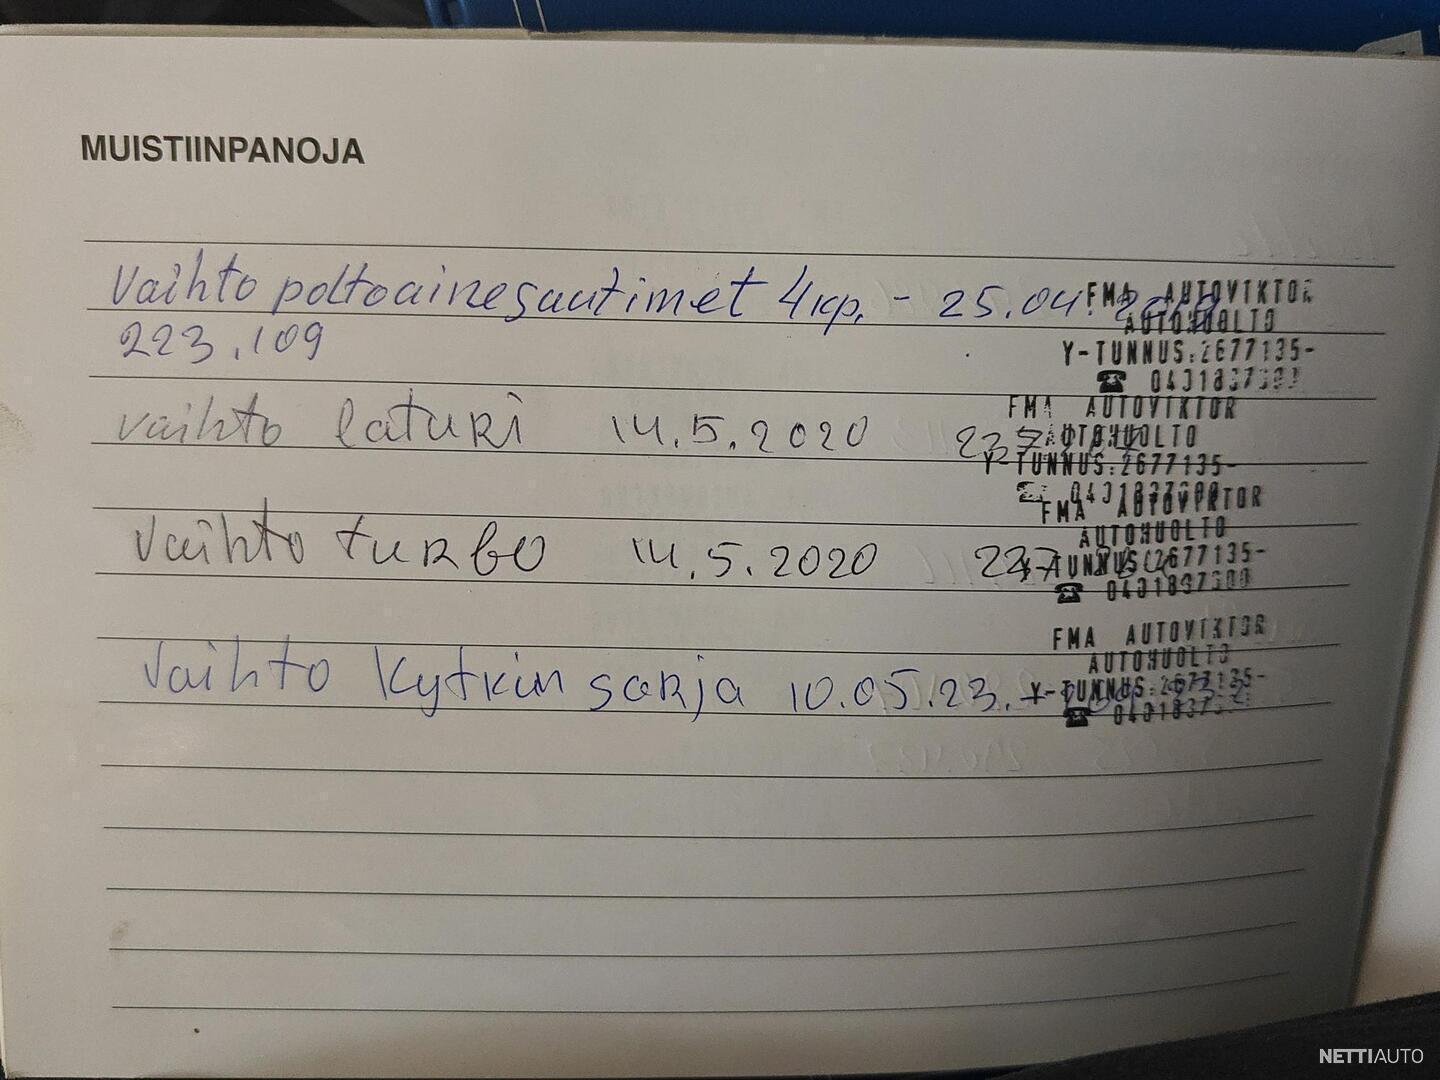 MUISTIINPANOJA
Vaihto poltoainesuutimet 4kp. - 25.04.
223.109
FMA AUTOVIKTOR
AUTOHUOLTO
Y-TUNNUS:2677135-
☎
vaihto laturi 14.5.2020
FMA AUTOVIKTOR
AUTOHUOLTO
Y-TUNNUS:2677135-
☎
Vaihto turbo 14.5.2020
FMA AUTOVIKTOR
AUTOHUOLTO
Y-TUNNUS:2677135-
☎
Vaihto Kytkin sarja 10.05.23.
FMA AUTOVIKTOR
AUTOHUOLTO
Y-TUNNUS:2677135-
☎
NETTIAUTO